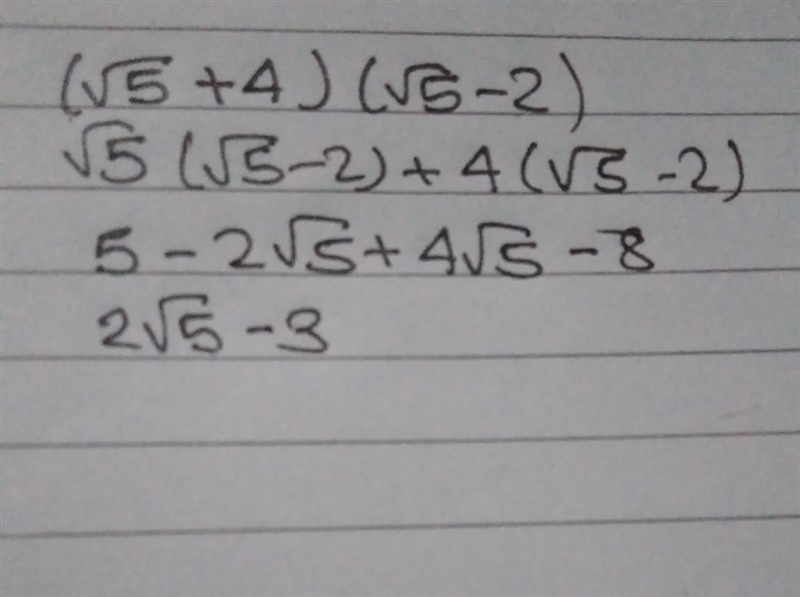 (√5 + 4) (√5 - 2)
√5 (√5 - 2) + 4 (√5 - 2)
5 - 2√5 + 4√5 - 8
2√5 - 3